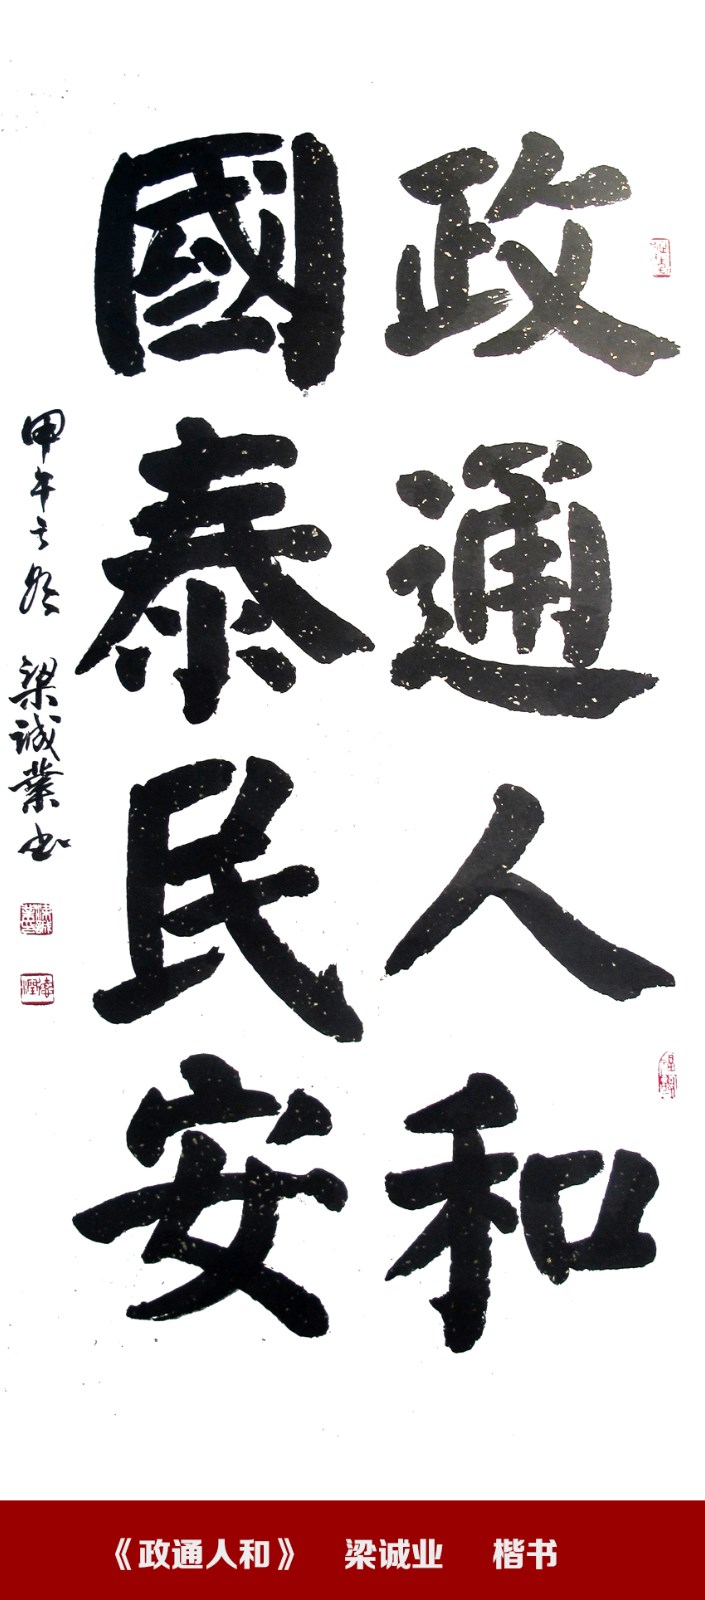 政通人和
國泰民安
甲午之冬
梁诚業书
《政通人和》 梁诚业 楷书